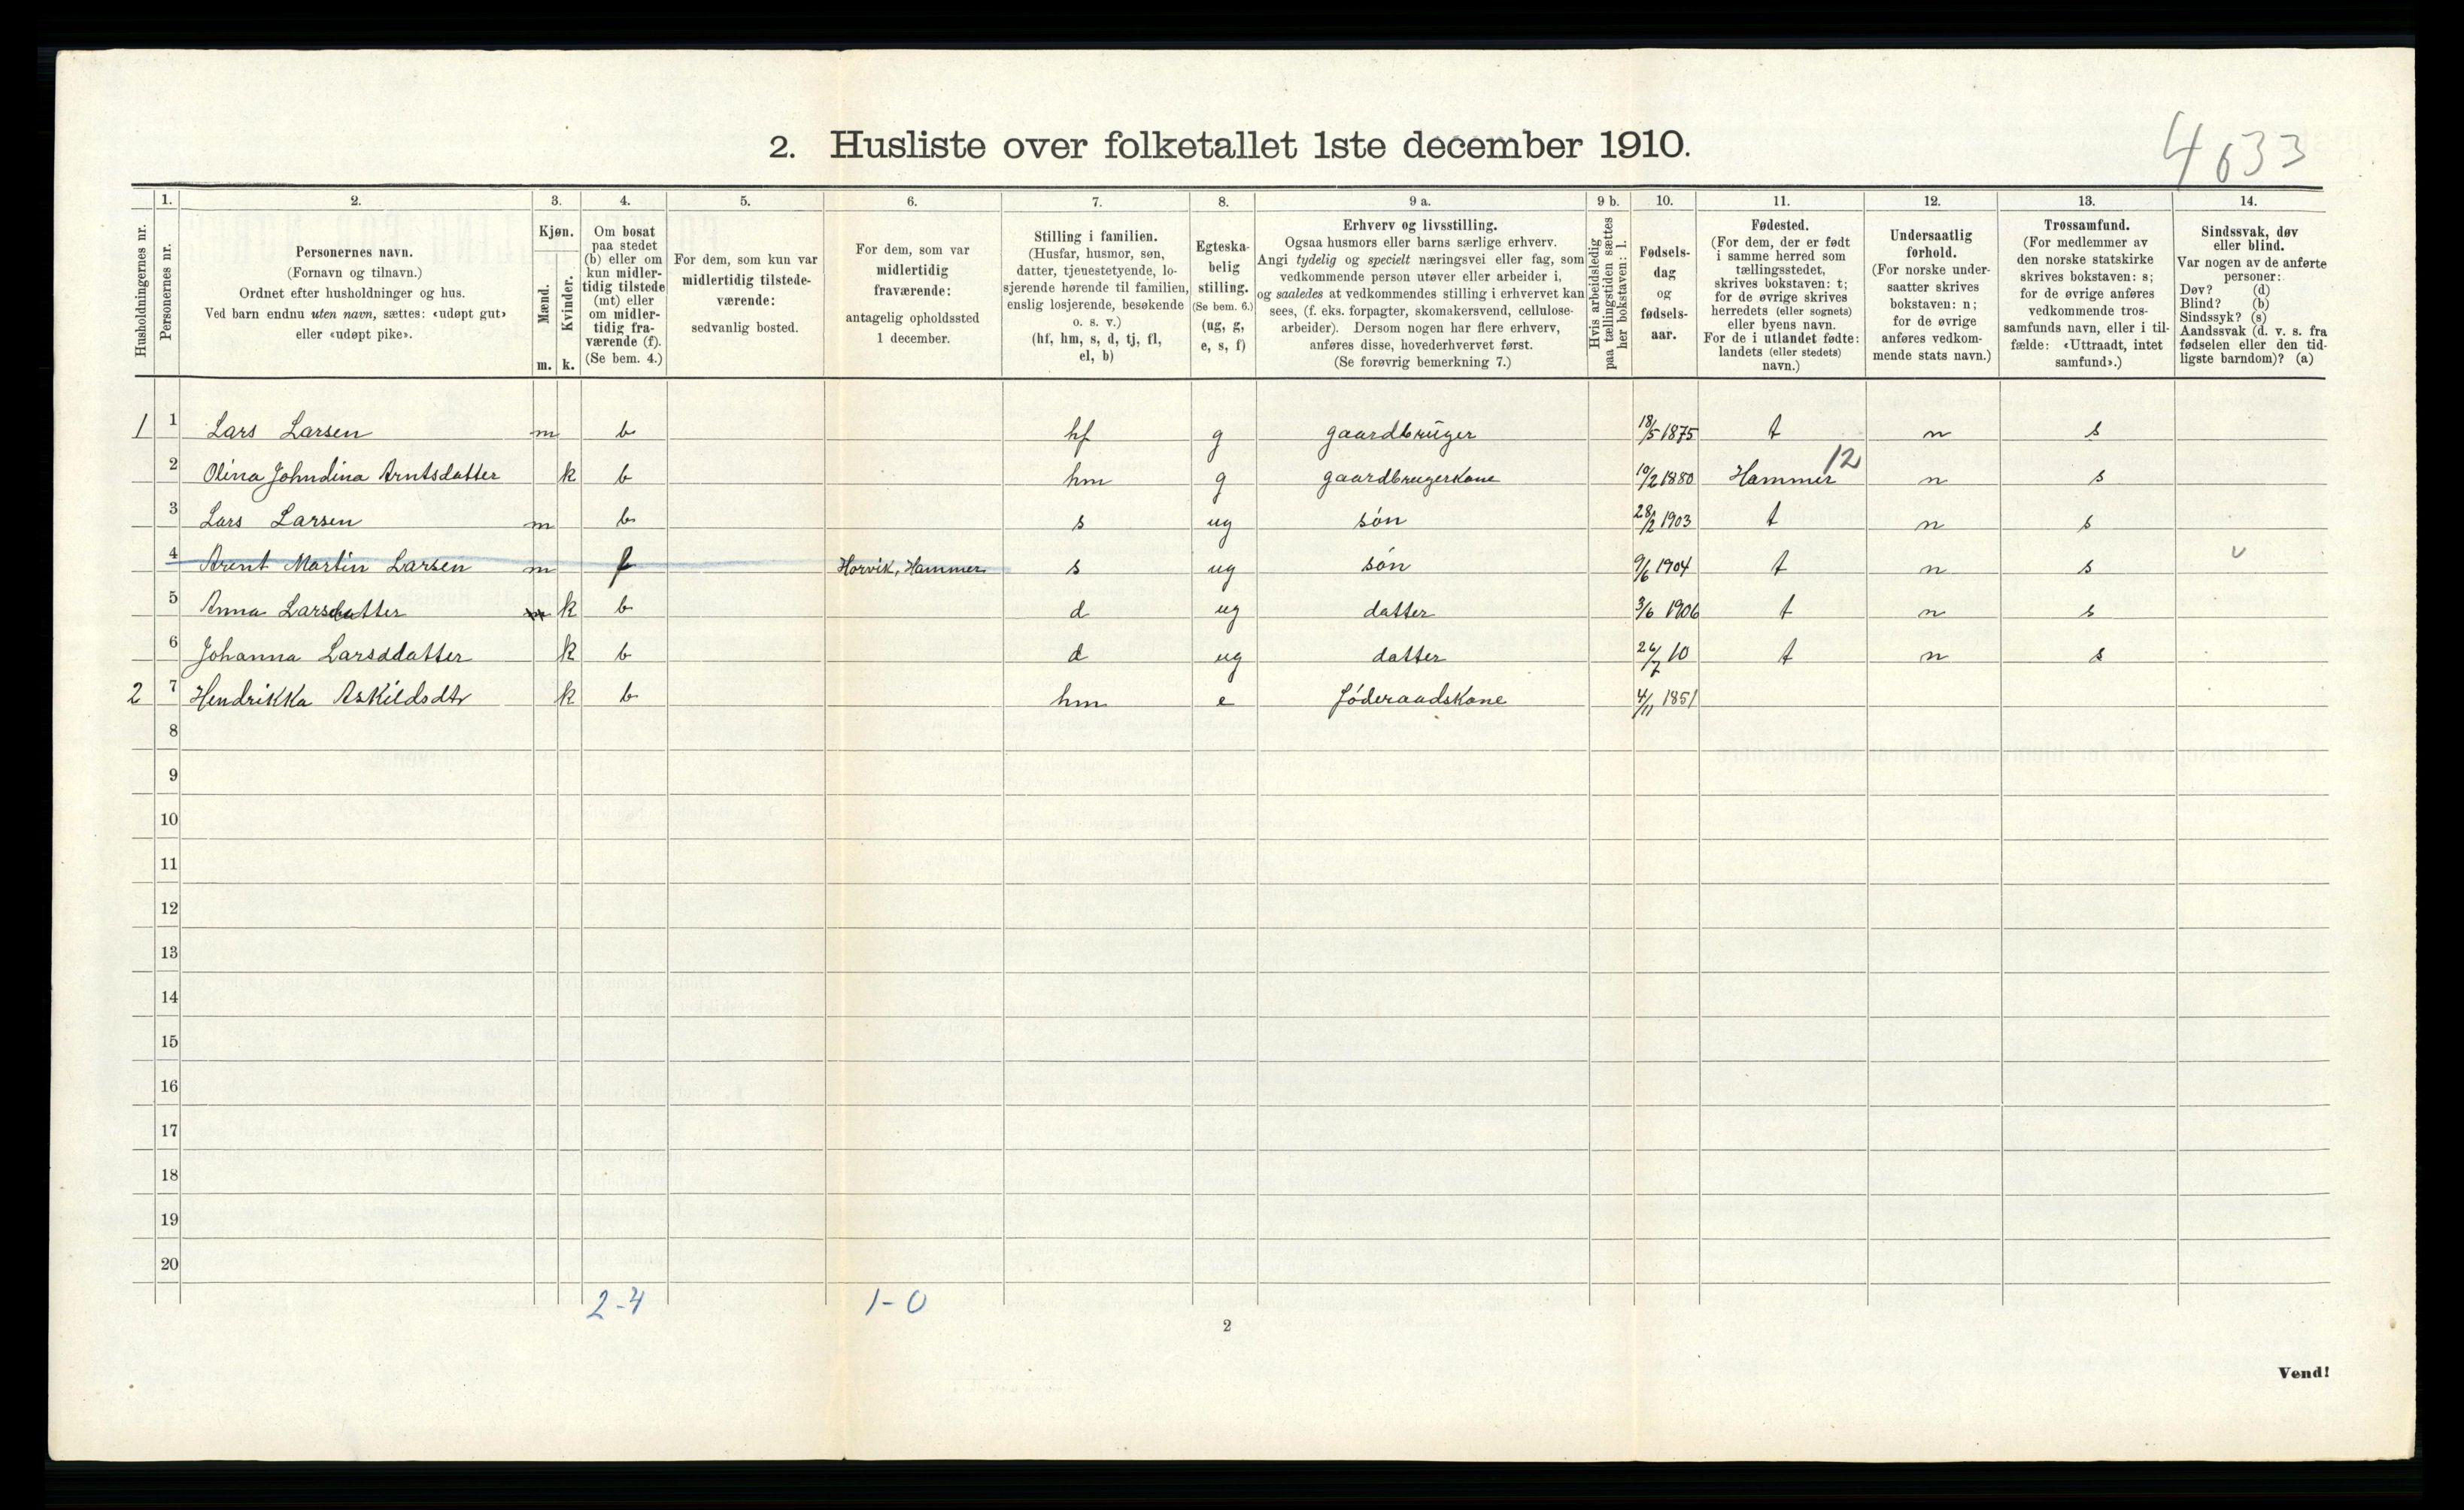 4633
2. Husliste over folketallet 1ste december 1910.
Husholdningernes nr.
1.
Personernes nr.
2.
Personernes navn.
(Fornavn og tilnavn.)
Ordnet efter husholdninger og hus.
Ved barn endnu uten navn, sættes: «udøpt gut»
eller «udøpt pike».
3.
Kjøn.
Mænd.
Kvinder.
m. k.
4.
Om bosat
paa stedet
(b) eller om
kun midler-
tidig tilstede
(mt) eller
om midler-
tidig fra-
værende (f).
(Se bem. 4.)
5.
For dem, som kun var
midlertidig tilstede-
værende:
sedvanlig bosted.
6.
For dem, som var
midlertidig
fraværende:
antagelig opholdssted
1 december.
7.
Stilling i familien.
(Husfar, husmor, søn,
datter, tjenestetyende, lo-
sjerende hørende til familien,
enslig losjerende, besøkende
o. s. v.)
(hf, hm, s, d, tj, fl,
el, b)
8.
Egteska-
belig
stilling.
(Se bem. 6.)
(ug, g,
e, s, f)
9 a.
Erhverv og livsstilling.
Ogsaa husmors eller barns særlige erhverv.
Angi tydelig og specielt næringsvei eller fag, som
vedkommende person utøver eller arbeider i,
og saaledes at vedkommendes stilling i erhvervet kan
sees, (f. eks. forpagter, skomakersvend, cellulose-
arbeider). Dersom nogen har flere erhverv,
anføres disse, hovederhvervet først.
(Se forøvrig bemerkning 7.)
9 b.
Hvis arbeidsledig
paa tællingstiden sættes
her bokstaven: l.
10.
Fødsels-
dag
og
fødsels-
aar.
11.
Fødested.
(For dem, der er født
i samme herred som
tællingsstedet,
skrives bokstaven: t;
for de øvrige skrives
herredets (eller sognets)
eller byens navn.
For de i utlandet fødte:
landets (eller stedets)
navn.)
12.
Undersaatlig
forhold.
(For norske under-
saatter skrives
bokstaven: n;
for de øvrige
anføres vedkom-
mende stats navn.)
13.
Trossamfund.
(For medlemmer av
den norske statskirke
skrives bokstaven: s;
for de øvrige anføres
vedkommende tros-
samfunds navn, eller i til-
fælde: «Uttraadt, intet
samfund».)
14.
Sindssvak, døv
eller blind.
Var nogen av de anførte
personer:
Døv? (d)
Blind? (b)
Sindssyk? (s)
Aandssvak (d. v. s. fra
fødselen eller den tid-
ligste barndom)? (a)
1 1 Lars Larsen m b hf g gaardbruger 18/5 1875 t n s
2 Olina Johndina Arntsdatter k b hm g gaardbrugerkone 10/2 1880 Hammer 12 n s
3 Lars Larsen m b s ug søn 28/2 1903 t n s
4 Arent Martin Larsen m f Horvik, Hammer s ug søn 9/6 1904 t n s v
5 Anna Larsdatter m k b d ug datter 3/6 1906 t n s
6 Johanna Larsddatter k b d ug datter 26/7 10 t n s
2 7 Hendrikka Askildsdtr k b hm e føderaadskone 4/11 1851
8
9
10
11
12
13
14
15
16
17
18
19
20
2-4 1-0
2
Vend!